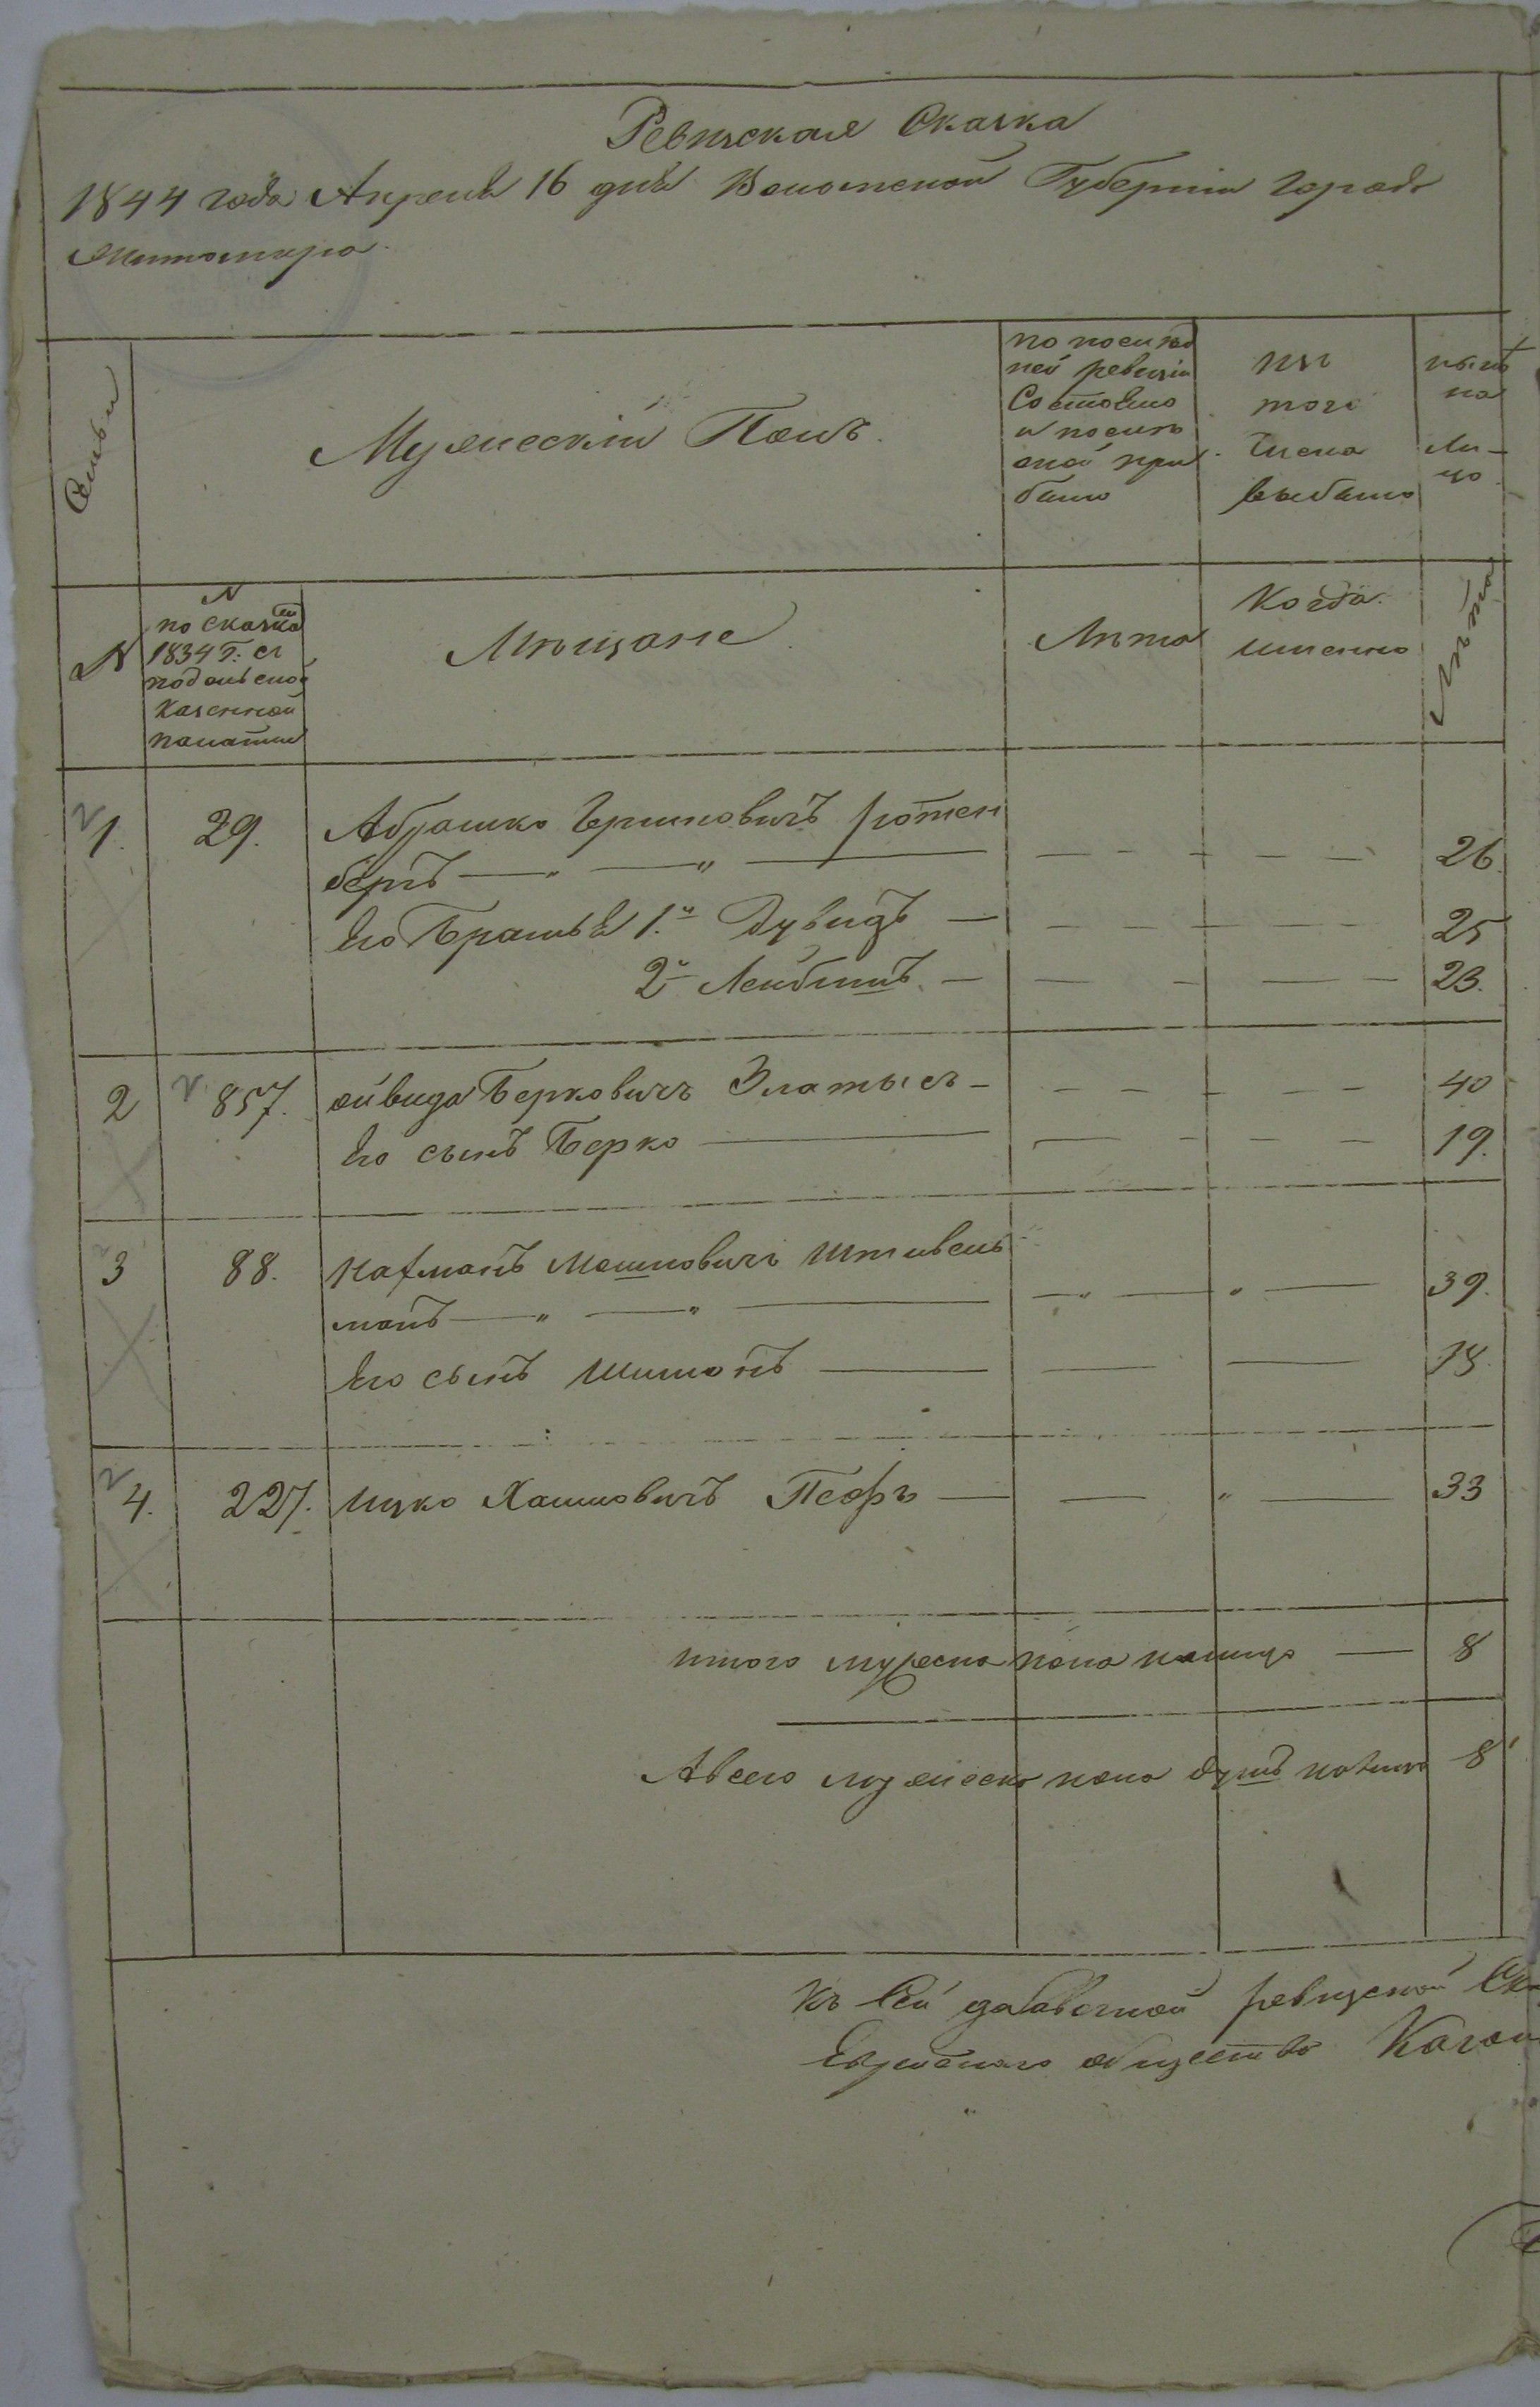 Ревизская Сказка
1844 года Апреля 16 дня Волынской Губернии города
Житомира
Семьи
Мужескій Полъ.
по послед
ней ревизіи
Состояло
и после
оной при
было
изъ
того
числа
выбыло
нынѣ
на
ли-
цо
N
N
по сказкѣ
1834 г: съ
подольской
казенной
палатии
Мѣщане
Лѣта
Когда
именно
Лѣта
1. 29. Абрашко Гершковичъ ротен
бергъ — " — " — 26.
Его Братья 1.й Дувидъ — 25
2й Лейбишъ — 23.
2 857. Берковичъ Златысъ — 40
Его сынъ Берко — 19.
3 88. Нахманъ Мошковичъ Штивель
манъ — " — " — 39.
Его сынъ Шимонъ — 18.
4. 227. Ицко Хаимовичъ — " — 33
итого мужеска пола налицо — 8
А всего мужеска пола душъ налицо 8
Къ сей добавочной ревизской Ска
Еврейскаго общества Кагал